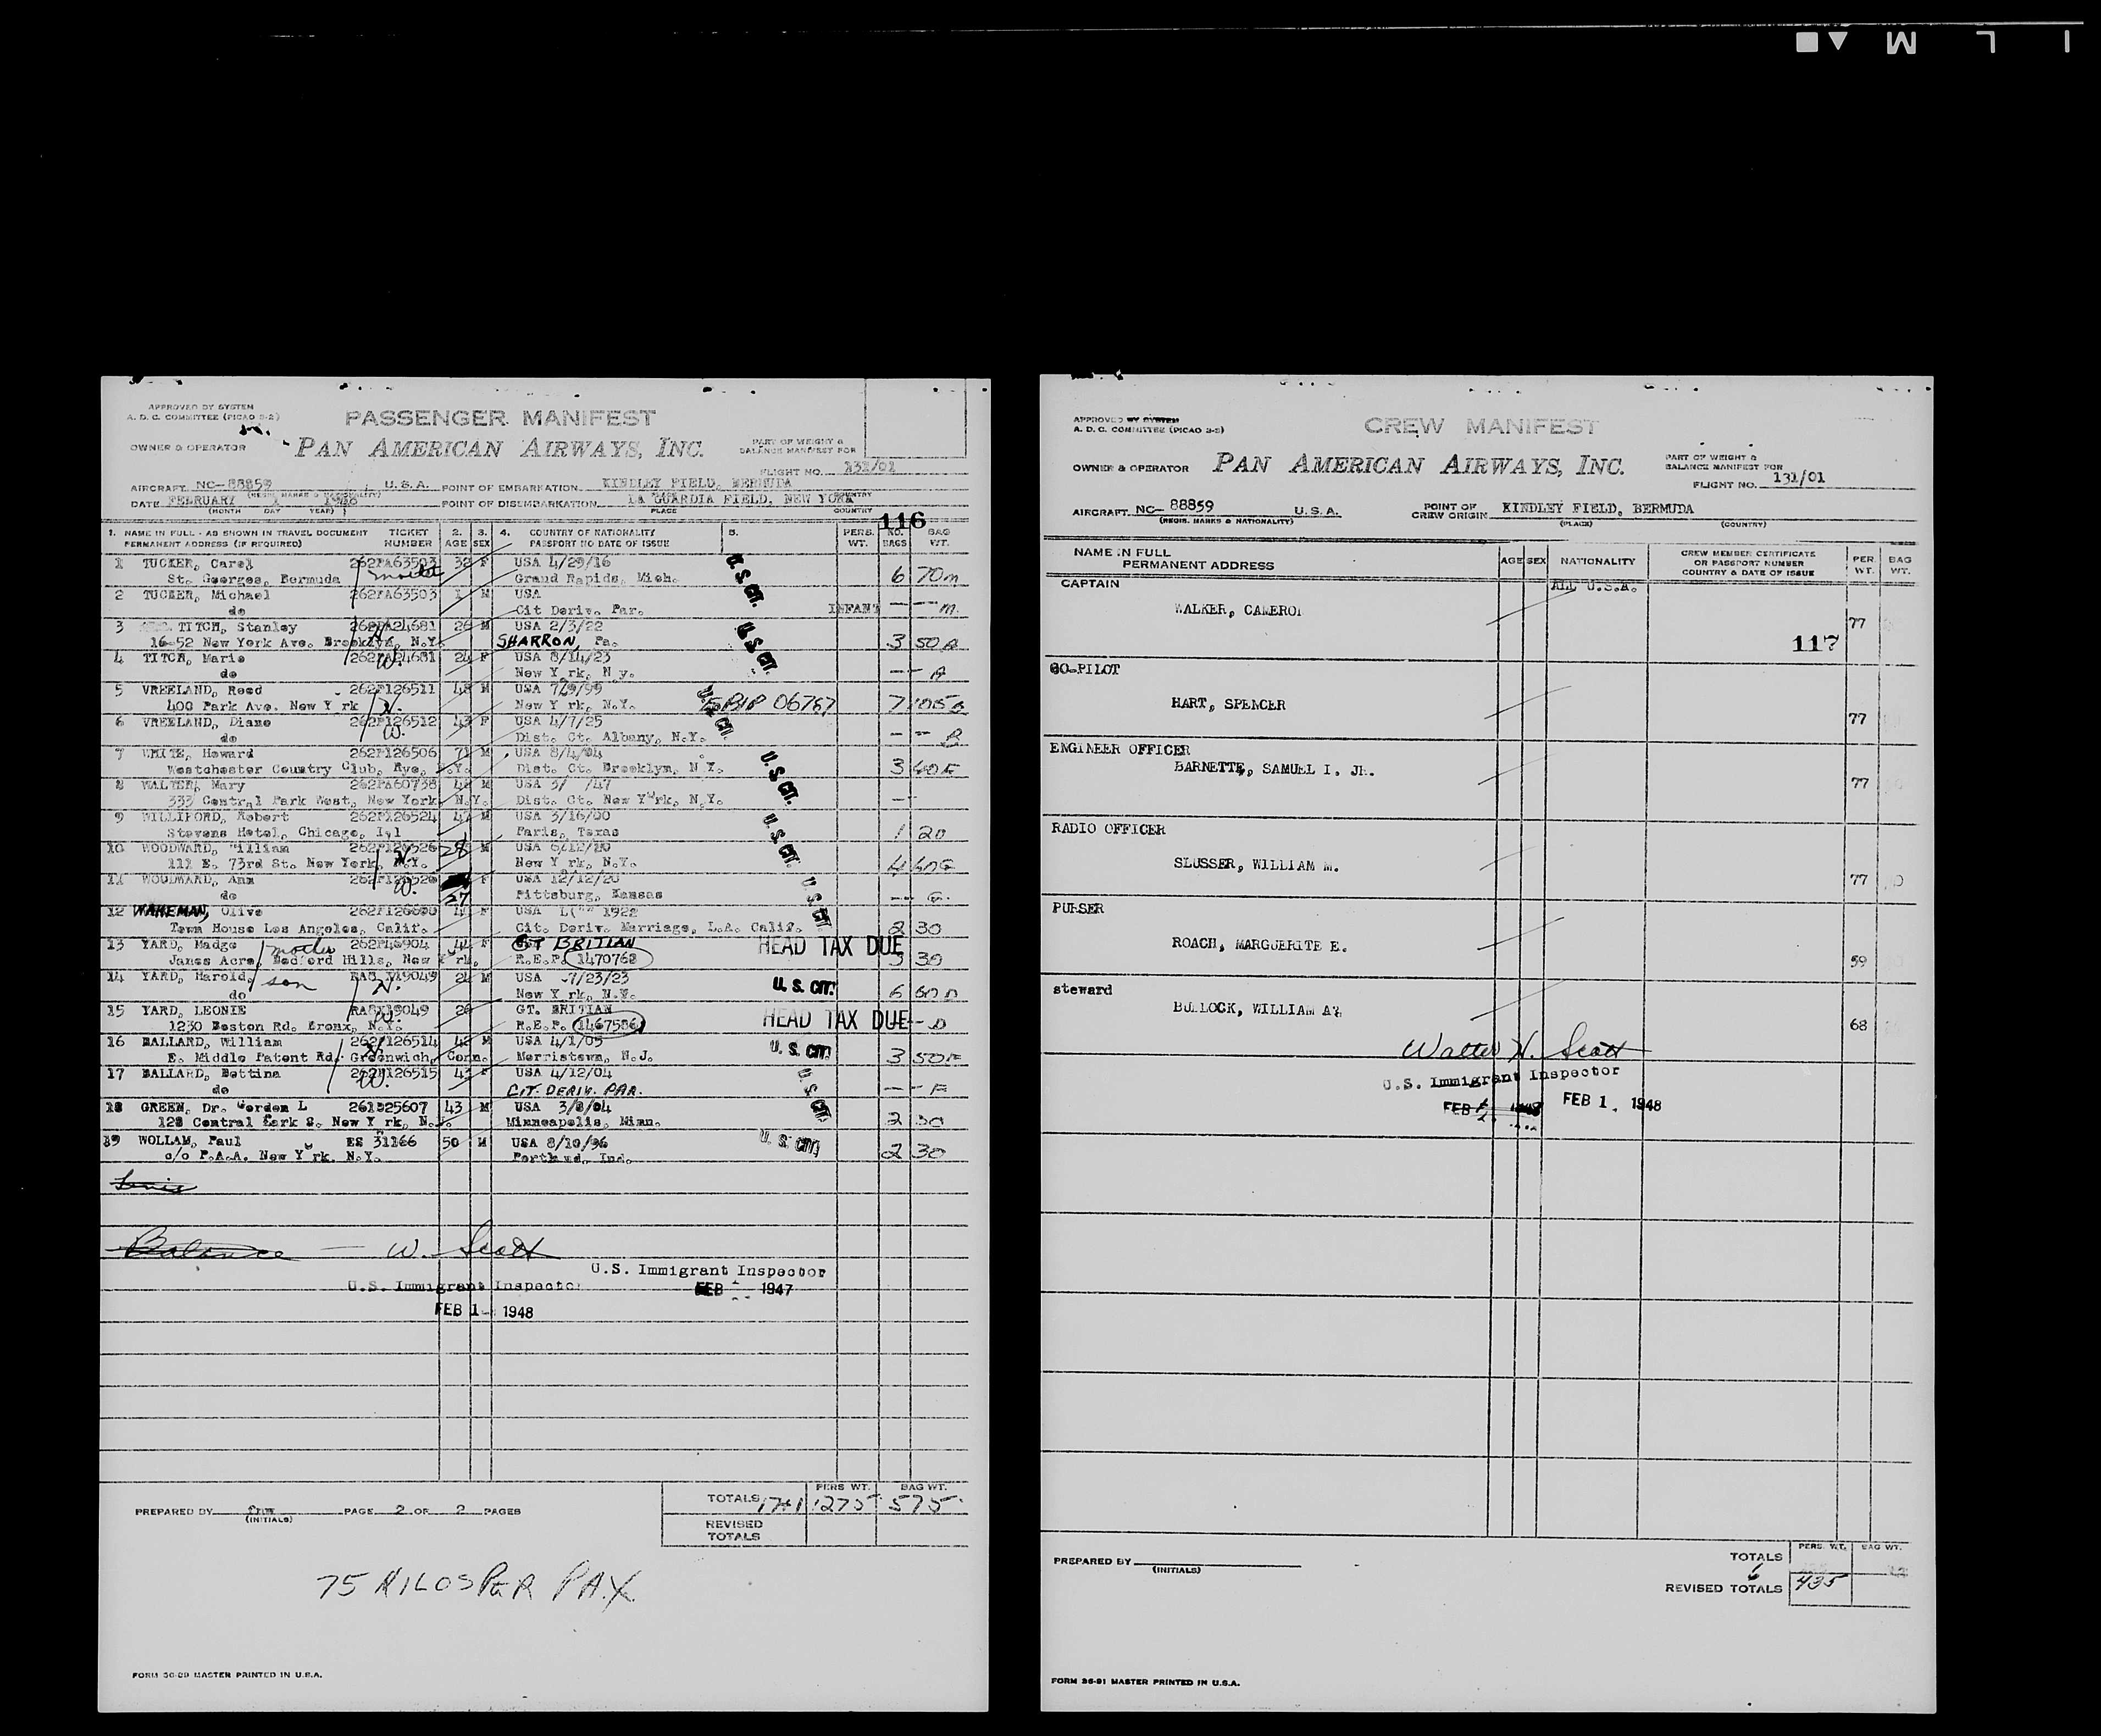 I L M
APPROVED BY SYSTEM
A. D. C. COMMITTEE (PICAO 3-2)
PASSENGER MANIFEST
OWNER & OPERATOR PAN AMERICAN AIRWAYS, INC.
PART OF WEIGHT &
BALANCE MANIFEST FOR
FLIGHT NO. 131/01
AIRCRAFT NC-88859 U.S.A. POINT OF EMBARKATION KINDLEY FIELD, BERMUDA
(REGIS. MARKS & NATIONALITY)
DATE FEBRUARY 1 1948 POINT OF DISEMBARKATION LA GUARDIA FIELD, NEW YORK
(MONTH DAY YEAR) PLACE COUNTRY
116
1. NAME IN FULL - AS SHOWN IN TRAVEL DOCUMENT TICKET 2. 3. 4. COUNTRY OF NATIONALITY 5. PERS. NO. BAG
PERMANENT ADDRESS (IF REQUIRED) NUMBER AGE SEX PASSPORT NO DATE OF ISSUE WT. BAGS WT.
1 TUCKER, Carol 262PA63503 32 F USA 4/29/16 U.S. CIT.
St. Georges, Bermuda Grand Rapids, Mich. 6 70m
2 TUCKER, Michael 262PA63503 1 M USA
do Cit Deriv. Par. INFANT — — m.
3 TITCH, Stanley 262PA24681 26 M USA 2/3/22 U.S. CIT.
16-52 New York Ave. Brooklyn, N.Y. SHARRON, Pa. 3 50 A
4 TITCH, Marie 262PA24681 24 F USA 8/14/23
do W. New Y rk, N y. — — A
5 VREELAND, Reed 262P126511 48 M USA 7/9/99 U.S. CIT.
400 Park Ave. New Y rk New Y rk, N.Y. 06787 7 105 B
6 VREELAND, Diane 262P126512 43 F USA 4/7/25
do W. Dist. Ct. Albany, N.Y. — — B
7 WHITE, Howard 262P126506 71 M USA 8/4/04 U.S. CIT.
Westchester Country Club, Rye, N.Y. Dist. Ct. Brooklyn, N Y. 3 40 F
8 WALTER, Mary 262PA60738 42 M USA 3/ /47
333 Central Park West, New York N.Y. Dist. Ct. New York, N.Y. —
9 WILLIFORD, Robert 262P126524 47 M USA 3/16/00 U.S. CIT.
Stevens Hotel, Chicago, Ill Paris, Texas 1 20
10 WOODWARD, William 262P126526 28 M USA 6/12/20
111 E. 73rd St. New York, N.Y. New Y rk, N.Y. 4 60 G
11 WOODWARD, Ann 262P126526 27 F USA 12/12/20 U.S. CIT.
do W. Pittsburg, Kansas — — G.
12 WAKEMAN, Olive F USA 1922
Town House Los Angeles, Calif. Cit. Deriv. Marriage, L.A. Calif. 2 30
13 YARD, Madge 44 F GT BRITIAN HEAD TAX DUE
Janes Acre, Bedford Hills, New Y rk. R.E.P. 1470768 3 30
14 YARD, Harold, son 24 M USA 7/23/23 U. S. CIT.
do New Y rk, N.Y. 6 60 D
15 YARD, LEONIE 26 GT. BRITIAN
1230 Boston Rd. Bronx, N.Y. W. R.E.P. 1467586 HEAD TAX DUE — D
16 BALLARD, William 262P126514 42 M USA 4/1/05 U. S. CIT.
E. Middle Patent Rd. Greenwich, Conn. Morristown, N.J. 3 50 F
17 BALLARD, Bettina 262P126515 43 F USA 4/12/04 U. S. CIT.
do W. CIT. DERIV. PAR. — — F
18 GREEN, Dr. Gordon L 261P25607 43 M USA 3/8/04
128 Central Park S. New Y rk, N.Y. Minneapolis, Minn. 2 30
19 WOLLAM, Paul ES 31166 50 M USA 8/10/96 U. S. CIT.
c/o P.A.A. New Y rk. N.Y. Portland, Ind. 2 30
Balance — W. Scott
U.S. Immigrant Inspector
FEB 1947
U.S. Immigrant Inspector
FEB 1 - 1948
PREPARED BY (INITIALS) PAGE 2 OF 2 PAGES
PERS WT. BAG WT.
TOTALS 17+1 1275 575
REVISED
TOTALS
75 KILOS PER PAX
FORM 36-89 MASTER PRINTED IN U.S.A.
APPROVED BY SYSTEM
A. D. C. COMMITTEE (PICAO 3-2)
CREW MANIFEST
OWNER & OPERATOR PAN AMERICAN AIRWAYS, INC.
PART OF WEIGHT &
BALANCE MANIFEST FOR
FLIGHT NO. 131/01
AIRCRAFT NC- 88859 U.S.A. POINT OF CREW ORIGIN KINDLEY FIELD, BERMUDA
(REGIS. MARKS & NATIONALITY) (PLACE) (COUNTRY)
NAME IN FULL AGE SEX NATIONALITY CREW MEMBER CERTIFICATE PER BAG
PERMANENT ADDRESS OR PASSPORT NUMBER WT. WT.
COUNTRY & DATE OF ISSUE
CAPTAIN ALL U.S.A.
WALKER, CAMERON 77
117
CO-PILOT
HART, SPENCER 77
ENGINEER OFFICER
BARNETTE, SAMUEL I. JR. 77
RADIO OFFICER
SLUSSER, WILLIAM M. 77
PURSER
ROACH, MARGUERITE E. 59
steward
BULLOCK, WILLIAM A. 68
Walter W. Scott
U.S. Immigrant Inspector
FEB 1. 1948
PREPARED BY
(INITIALS)
PERS. WT. BAG WT.
TOTALS 6
REVISED TOTALS 435
FORM 36-91 MASTER PRINTED IN U.S.A.